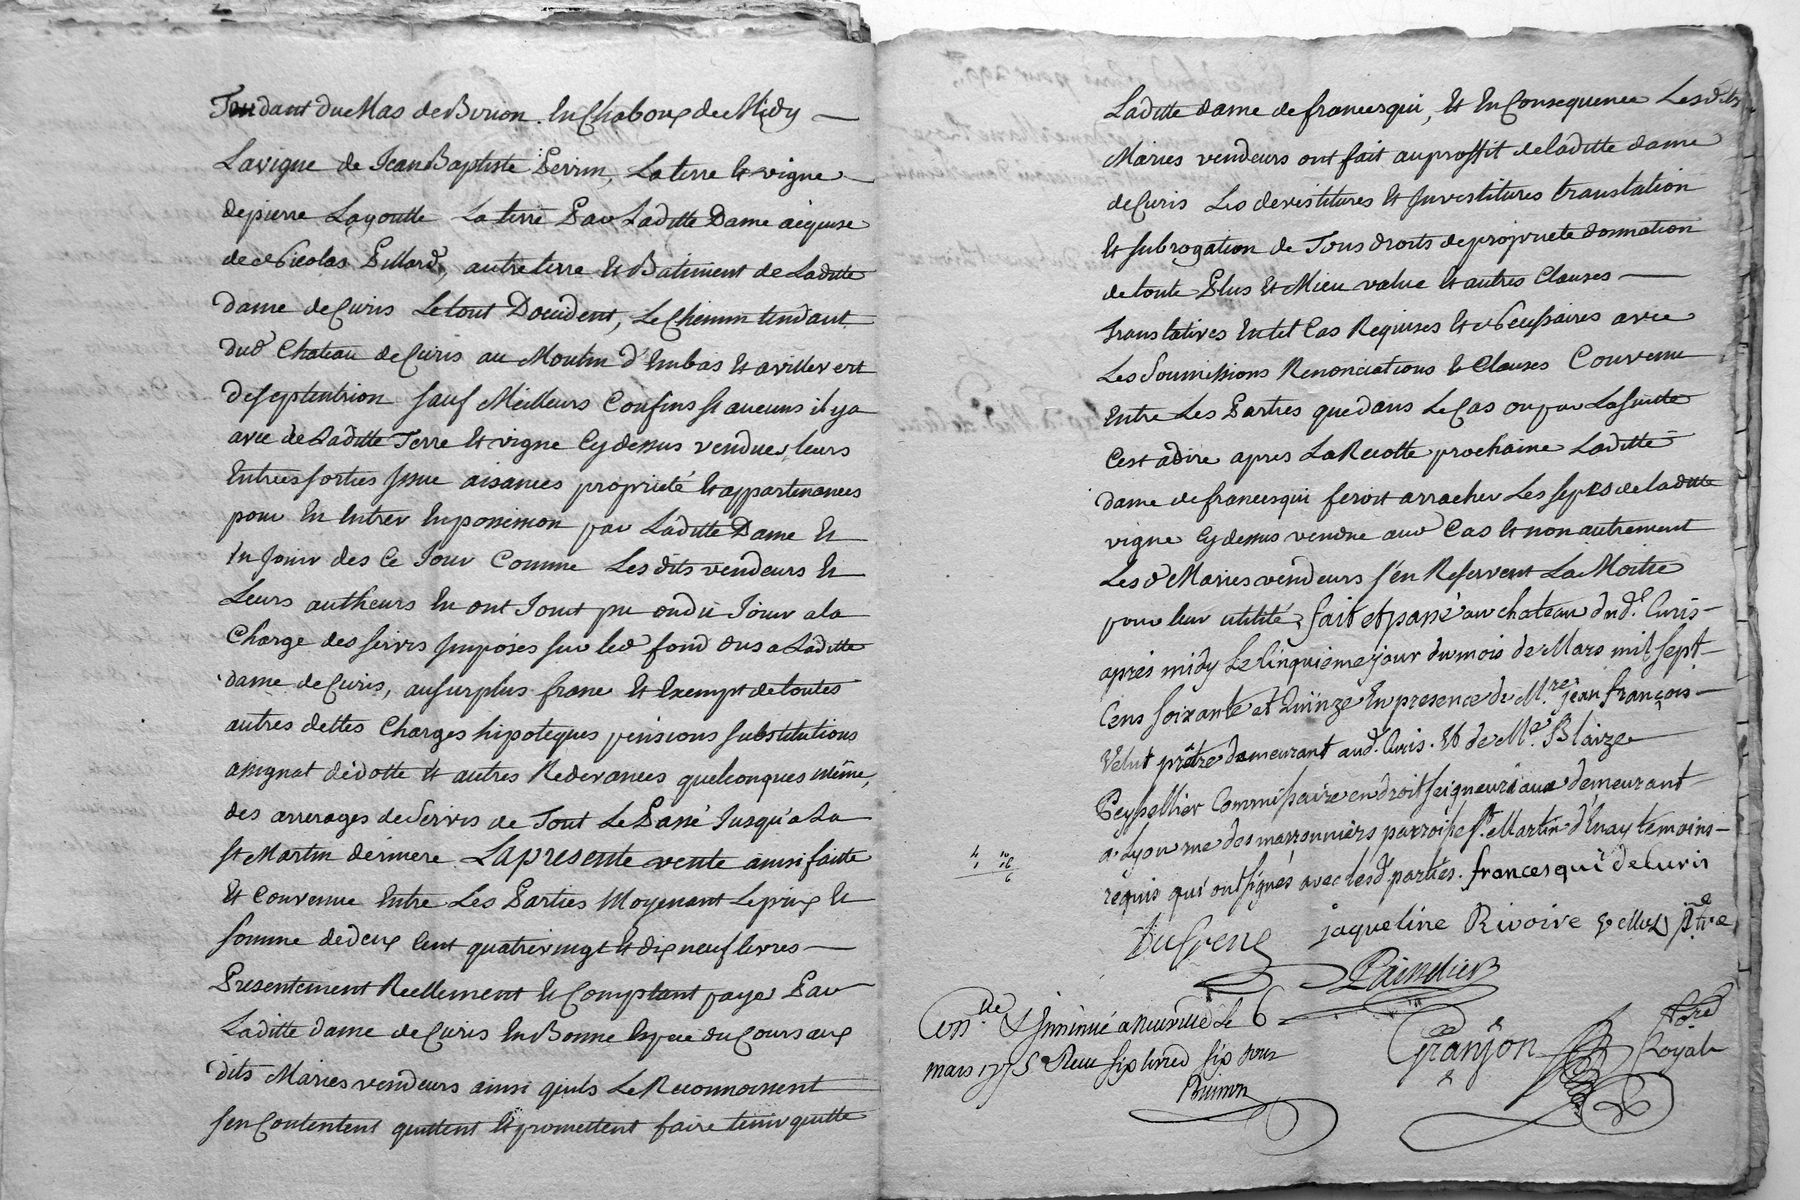 Tendant du Mas de Burion en Chaboux de Midy
La vigne de Jean Baptiste Perrin, La terre et vigne
de pierre Layoutte La terre Par Laditte Dame acquise
de Nicolas Pillard, autre terre et Batiment de Laditte
dame de Curis Le tout Doccident, Le Chemin tendant
dud Chateau de Curis au Moulin d'Embas et a villevert
de septentrion sauf Meilleurs Confins si aucuns il y a
avec de Laditte Terre et vigne Cy dessus vendue, leurs
Entrées sorties Issue aisances propriété et appartenances
pour En Entrer En possession par Laditte Dame et
En Jouir des Ce Jour Comme Lesdits vendeurs et
Leurs autheurs En ont Jouit pu ou du Jouir a la
Charge des servis Imposés sur led fond dus a Laditte
dame de Curis, au surplus franc et Exempt de toutes
autres dettes Charges hipoteques pensions substitutions
assignat de dotte et autres Redevances quelconques même,
des arrerages de Servis de Tout Le Passé Jusqu'a La
st Martin derniere. La presente vente ainsi faitte
Et Convenue Entre Les Parties Moyenant Le prix et
somme de deux Cent quatre vingt et dix neuf livres
Presentement Reellement et Comptant payes Par
Laditte dame de Curis En Bonne Espece du Cours aux
dits Maries vendeurs ainsi quils Le Reconnoissent
s'en Contentent quittent et promettent faire tenir quitte
Laditte dame de francesqui, Et En Consequence Lesdits
Maries vendeurs ont fait au proffit de laditte dame
de Curis Les devestitures et Investitures translation
Et subrogation de Tous droits de propriete donnation
de toute Plus et Mieu value et autres Clauses
translatives En tel Cas Requises et Necessaires avec
Les Soumissions Renonciations et Clauses Convenu
Entre Les Parties que dans Le Cas ou par La suitte
C'est a dire apres La Recolte prochaine Laditte
dame de francesqui feroit arracher Les seps de laditte
vigne Cy dessus vendue aud Cas et non autrement
Les d Maries vendeurs s'en Reservent La Moitié
pour leur utilité, fait et passé au chateau dud. Curis
après midy Le Cinquieme jour du mois de Mars mil sept
Cens soixante et Quinze En presence de Mre. jean françois
Velut prêtre demeurant aud. Curis. Et de Mr. Blaize
Peyssellier Commissaire en droit seigneuriaux demeurant
a Lyon rue des marronniers parroisse st. Martin d'Enay temoins
requis qui ont signés avec lesd. parties. francesqui de Curis
Dufrene jaqueline Rivoire Vellut Ptre
Paindier
Con.lle & Insinué a Neuville le 6
mars 1775 Reçu six livres six sous
Granjon Nore
Royale